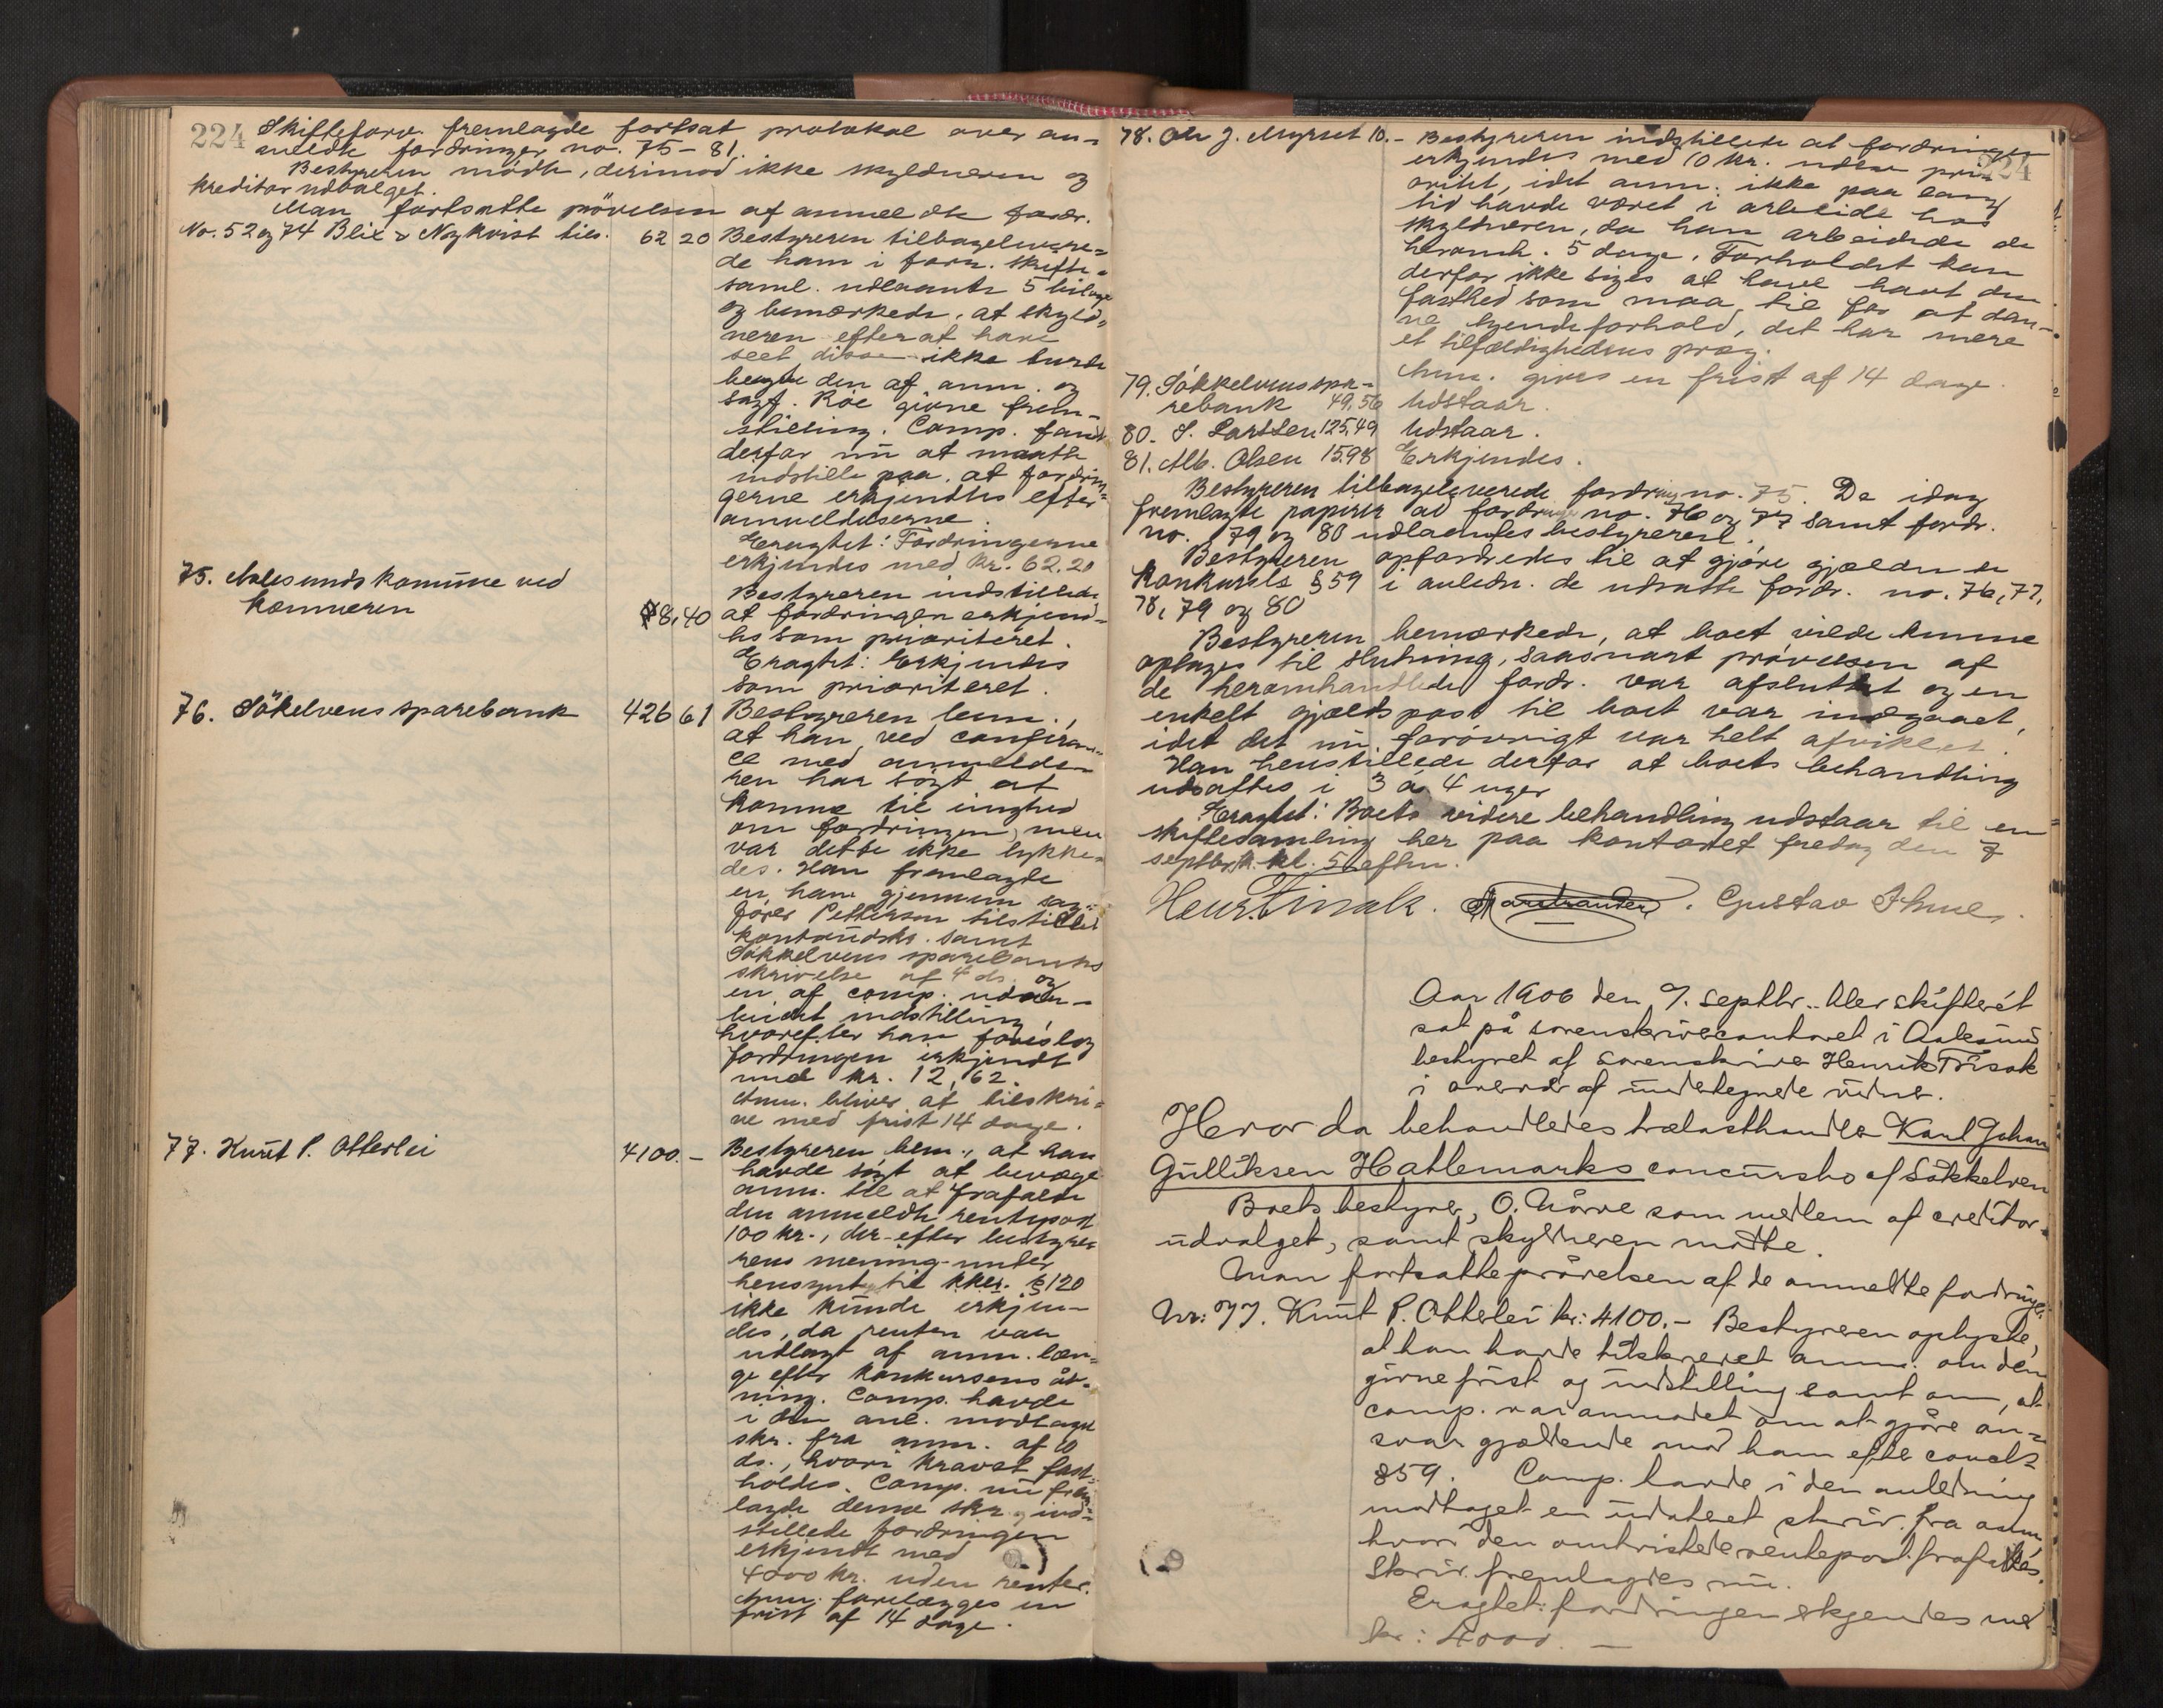 224 Skifteforv. fremlagde fortsat protokol over an-
meldte fordringer no. 75-81.
Bestyreren mödte, derimod ikke skyldneren og
kreditorudvalget.
Man fortsatte prövelsen af anmeldte fordr.
No. 52 og 74 Blix & Nykvist tils. 62 20 Bestyreren tilbageleve-
de ham i forr. skifte-
saml. udlaante 5 bilage
og bemærkede, at skyld-
neren efter at have
seet disse ikke turde
benegte den af anm. og
sagf. Röe givne frem-
stilling. Comp. fandt
derfor nu at maatte
indstille paa, at fordrin-
gerne erkjendtes efter
anmeldelserne.
Eragtet: Fordringerne
erkjendes med kr. 62.20
75. Aalesunds kommune ved
kæmneren 8,40
Bestyreren indstillede
at fordringen erkjend-
tes som prioriteret.
Eragtet: Erkjendes
som prioriteret.
76. Sökelvens sparebank 426 61 Bestyreren bem.,
at han ved conferan-
ce med anmelde-
ren har sögt at
komme til enighed
om fordringen, men
var dette ikke lykke-
des. Han fremlagde
en ham gjennem sag-
förer Petterson tilstillet
kontoudskr. samt
Sökkelvens sparebanks
skrivelse af 4 ds. og
en af comp. udar-
beidet indstilling,
hvorefter han foreslog
fordringen erkjendt
med kr. 12,62.
Anm. bliver at tilskri-
ve med frist 14 dage.
77. Knut P. Otterlei 4100.- Bestyreren bem., at han
havde sögt at bevæge
anm. til at frafalde
den anmeldte rentepost
100 kr., der efter bestyre-
rens mening under
hensyn til kkl. § 120
ikke kunde erkjen-
des, da renten var
udlagt af anm. læn-
ge efter konkursens åb-
ning. Comp. havde
i den anl. modtaget
skr. fra anm. af 10
ds., hvori kravet fast-
holdes. Comp. nu frem-
lagde denne skr., ind-
stillede fordringen
erkjendt med
4000 kr. uden renter.
Anm. forelægges en
frist af 14 dage.
224
78. Ole J. Myrset 10.- Bestyreren indstillede at fordringen
erkjendes med 10 kr. uden pri-
oritet, idet anm. ikke paa lang
tid havde været i arbeide hos
skyldneren, da han arbeidede de
heromh. 5 dage. Forholdet kan
derfor ikke siges at have havt den
fasthed som maa til for at dan-
ne tyendeforhold, det har mere
et tilfældighedens præg.
Anm. gives en frist af 14 dage.
79. Sökkelvens spa-
rebank 49,56 Udstaar.
80. S. Larssen 125,49 Udstaar.
81. Alb. Olsen 15.98 Erkjendes.
Bestyreren tilbageleverede fordring no. 75. De idag
fremlagte papirer ad fordring no. 76 og 77 samt fordr.
no. 79 og 80 udlaantes bestyreren.
Bestyreren opfordredes til at gjöre gjældende
konkursls § 59 i anledn. de udsatte fordr. no. 76, 77,
78, 79 og 80
Bestyreren bemærkede, at boet vilde kunne
optages til slutning, saasnart prövelsen af
de heromhandlede fordr. var afsluttet og en
enkelt gjældspost til boet var indgaaet,
idet det nu forövrigt var helt afviklet.
Han henstillede derfor at boets behandling
udsattes i 3 à 4 uger
Eragtet: Boets videre behandling udstaar til en
skiftesamling her paa kontoret fredag den 7
septbr. kl. 5 eftm.
Henr. Finsak. Gustav
Aar 1906 den 7. septbr. blev skifteret
sat på sorenskrivercontoret i Aalesund
bestyret af sorenskriver Henrik Finsak
i overvær af undertegnede vidne.
Hvor da behandledes trælasthandler Karl Johan
Gulliksen Hatlemarks concursbo af Sökkelven
Boets bestyrer, O. Nörve som medlem af creditor-
udvalget, samt skyldneren mödte.
Man fortsatte prövelsen af de anmeldte fordringer.
Nr: 77. Knut P. Otterlei kr: 4100.- Bestyreren oplyste,
at han havde tilskrevet anm. om den
givne frist og indstilling samt om, at
comp. var anmodet om at gjöre an-
svar gjældende mod ham efter concls
§59. Comp. havde i den anledning
modtaget en udateret skriv. fra anm.
hvori den omtvistede rentepost frafaldes.
Skriv. fremlagdes nu.
Eragtet: fordringen erkjendes med
kr: 4000.-